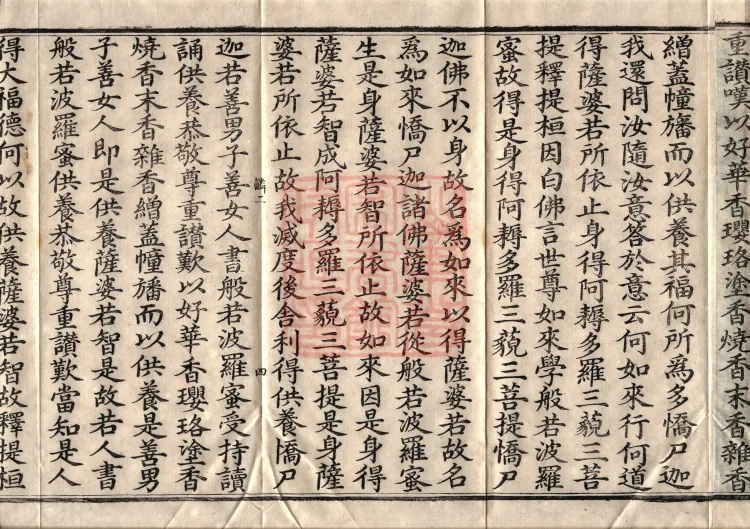 重讃嘆以好華香瓔珞塗香燒香末香雜香
繒蓋幢旛而以供養其福何所爲多憍尸迦
我還問汝隨汝意答於意云何如來行何道
得薩婆若所依止身得阿耨多羅三藐三菩
提釋提桓因白佛言世尊如來學般若波羅
蜜故得是身得阿耨多羅三藐三菩提憍尸
迦佛不以身故名爲如來以得薩婆若故名
爲如來憍尸迦諸佛薩婆若從般若波羅蜜
生是身薩婆若智所依止故如來因是身得
薩婆若智成阿耨多羅三藐三菩提是身薩
婆若所依止故我滅度後舍利得供養憍尸
鱗二
四
迦若善男子善女人書般若波羅蜜受持讀
誦供養恭敬尊重讃歎以好華香瓔珞塗香
燒香末香雜香繒蓋幢旛而以供養是善男
子善女人即是供養薩婆若智是故若人書
般若波羅蜜供養恭敬尊重讃歎當知是人
得大福德何以故供養薩婆若智故釋提桓